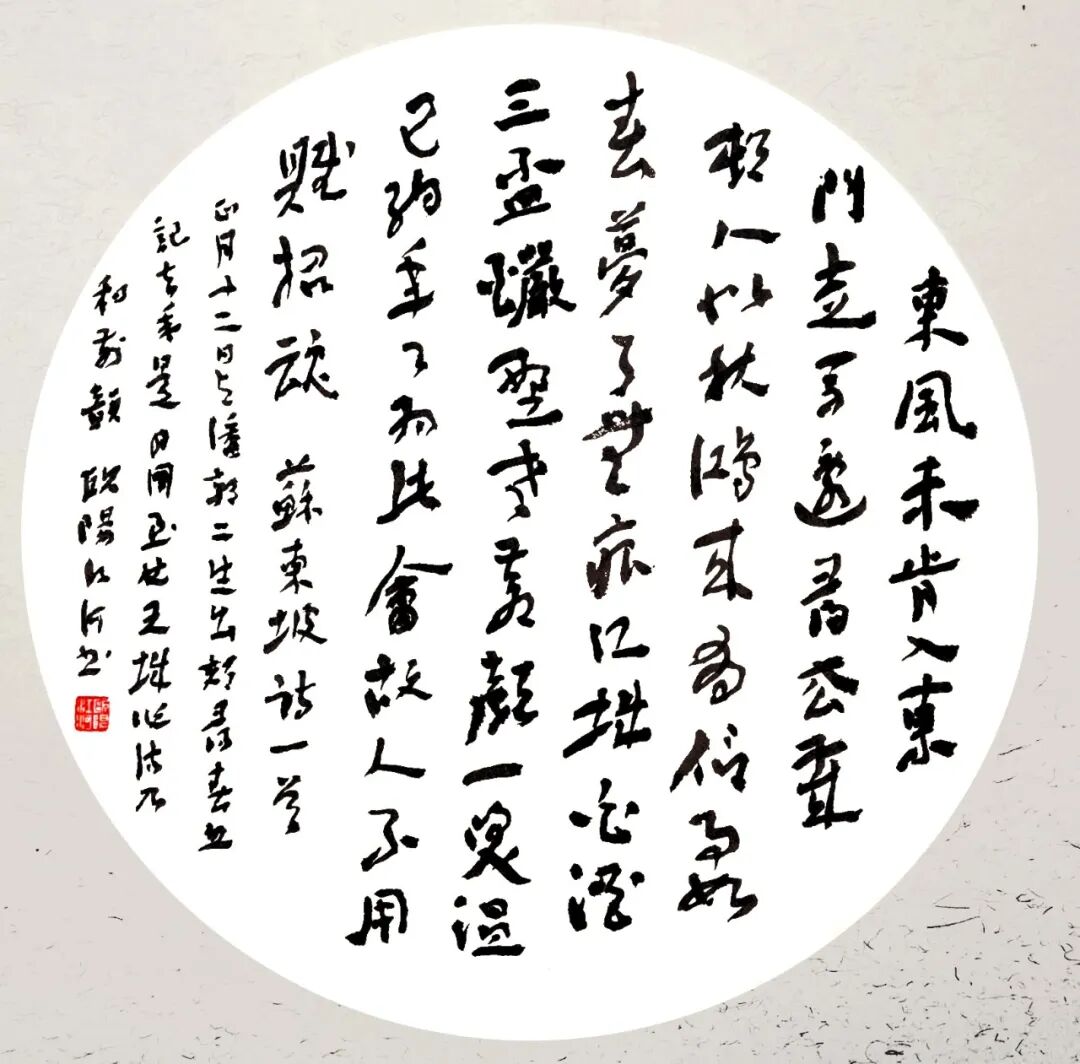 東風未肯入東
門走馬還尋去歲
村人似秋鴻來有信事如
春夢了無痕江城白酒
三盃釅野老蒼顏一笑温
已約年々為此會故人不用
賦招魂 蘇東坡詩一首
正月十二日與潘郭二生出郊尋春忽
記去年是日同至女王城作詩乃
和前韻 歐陽江河書
歐陽江河